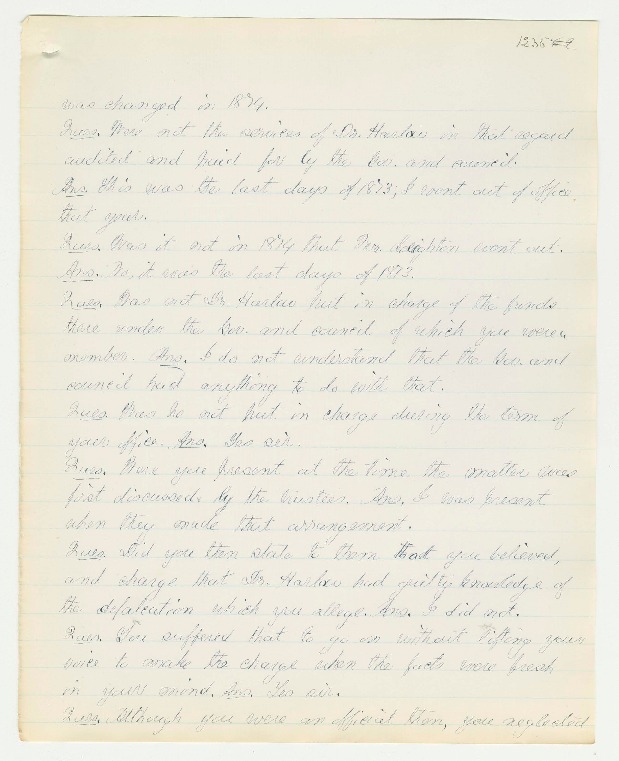 1235 #9
was changed in 1874.
Ques. Were not the services of Dr. Harlow in that regard
audited and paid for by the Gov. and council.
Ans. This was the last days of 1873, I went out of office
that year.
Ques. Was it not in 1874 that Dr. Leighton went out.
Ans. No, it was the last days of 1873.
Ques. Was not Dr. Harlow put in charge of the funds
there under the Gov. and council of which you were a
member. Ans. I do not understand that the Gov. and
council had anything to do with that.
Ques. Was he not put in charge during the term of
your office. Ans. Yes sir.
Ques. Were you present at the time the matter was
first discussed by the trustees. Ans. I was present
when they made that arrangement.
Ques. Did you then state to them that you believed,
and charge that Dr. Harlow had guilty knowledge of
the defalcation which you allege. Ans. I did not.
Ques. You suffered that to go on without lifting your
voice to make the charge when the facts were fresh
in your mind. Ans. Yes sir.
Ques. Although you were an official then, you neglected